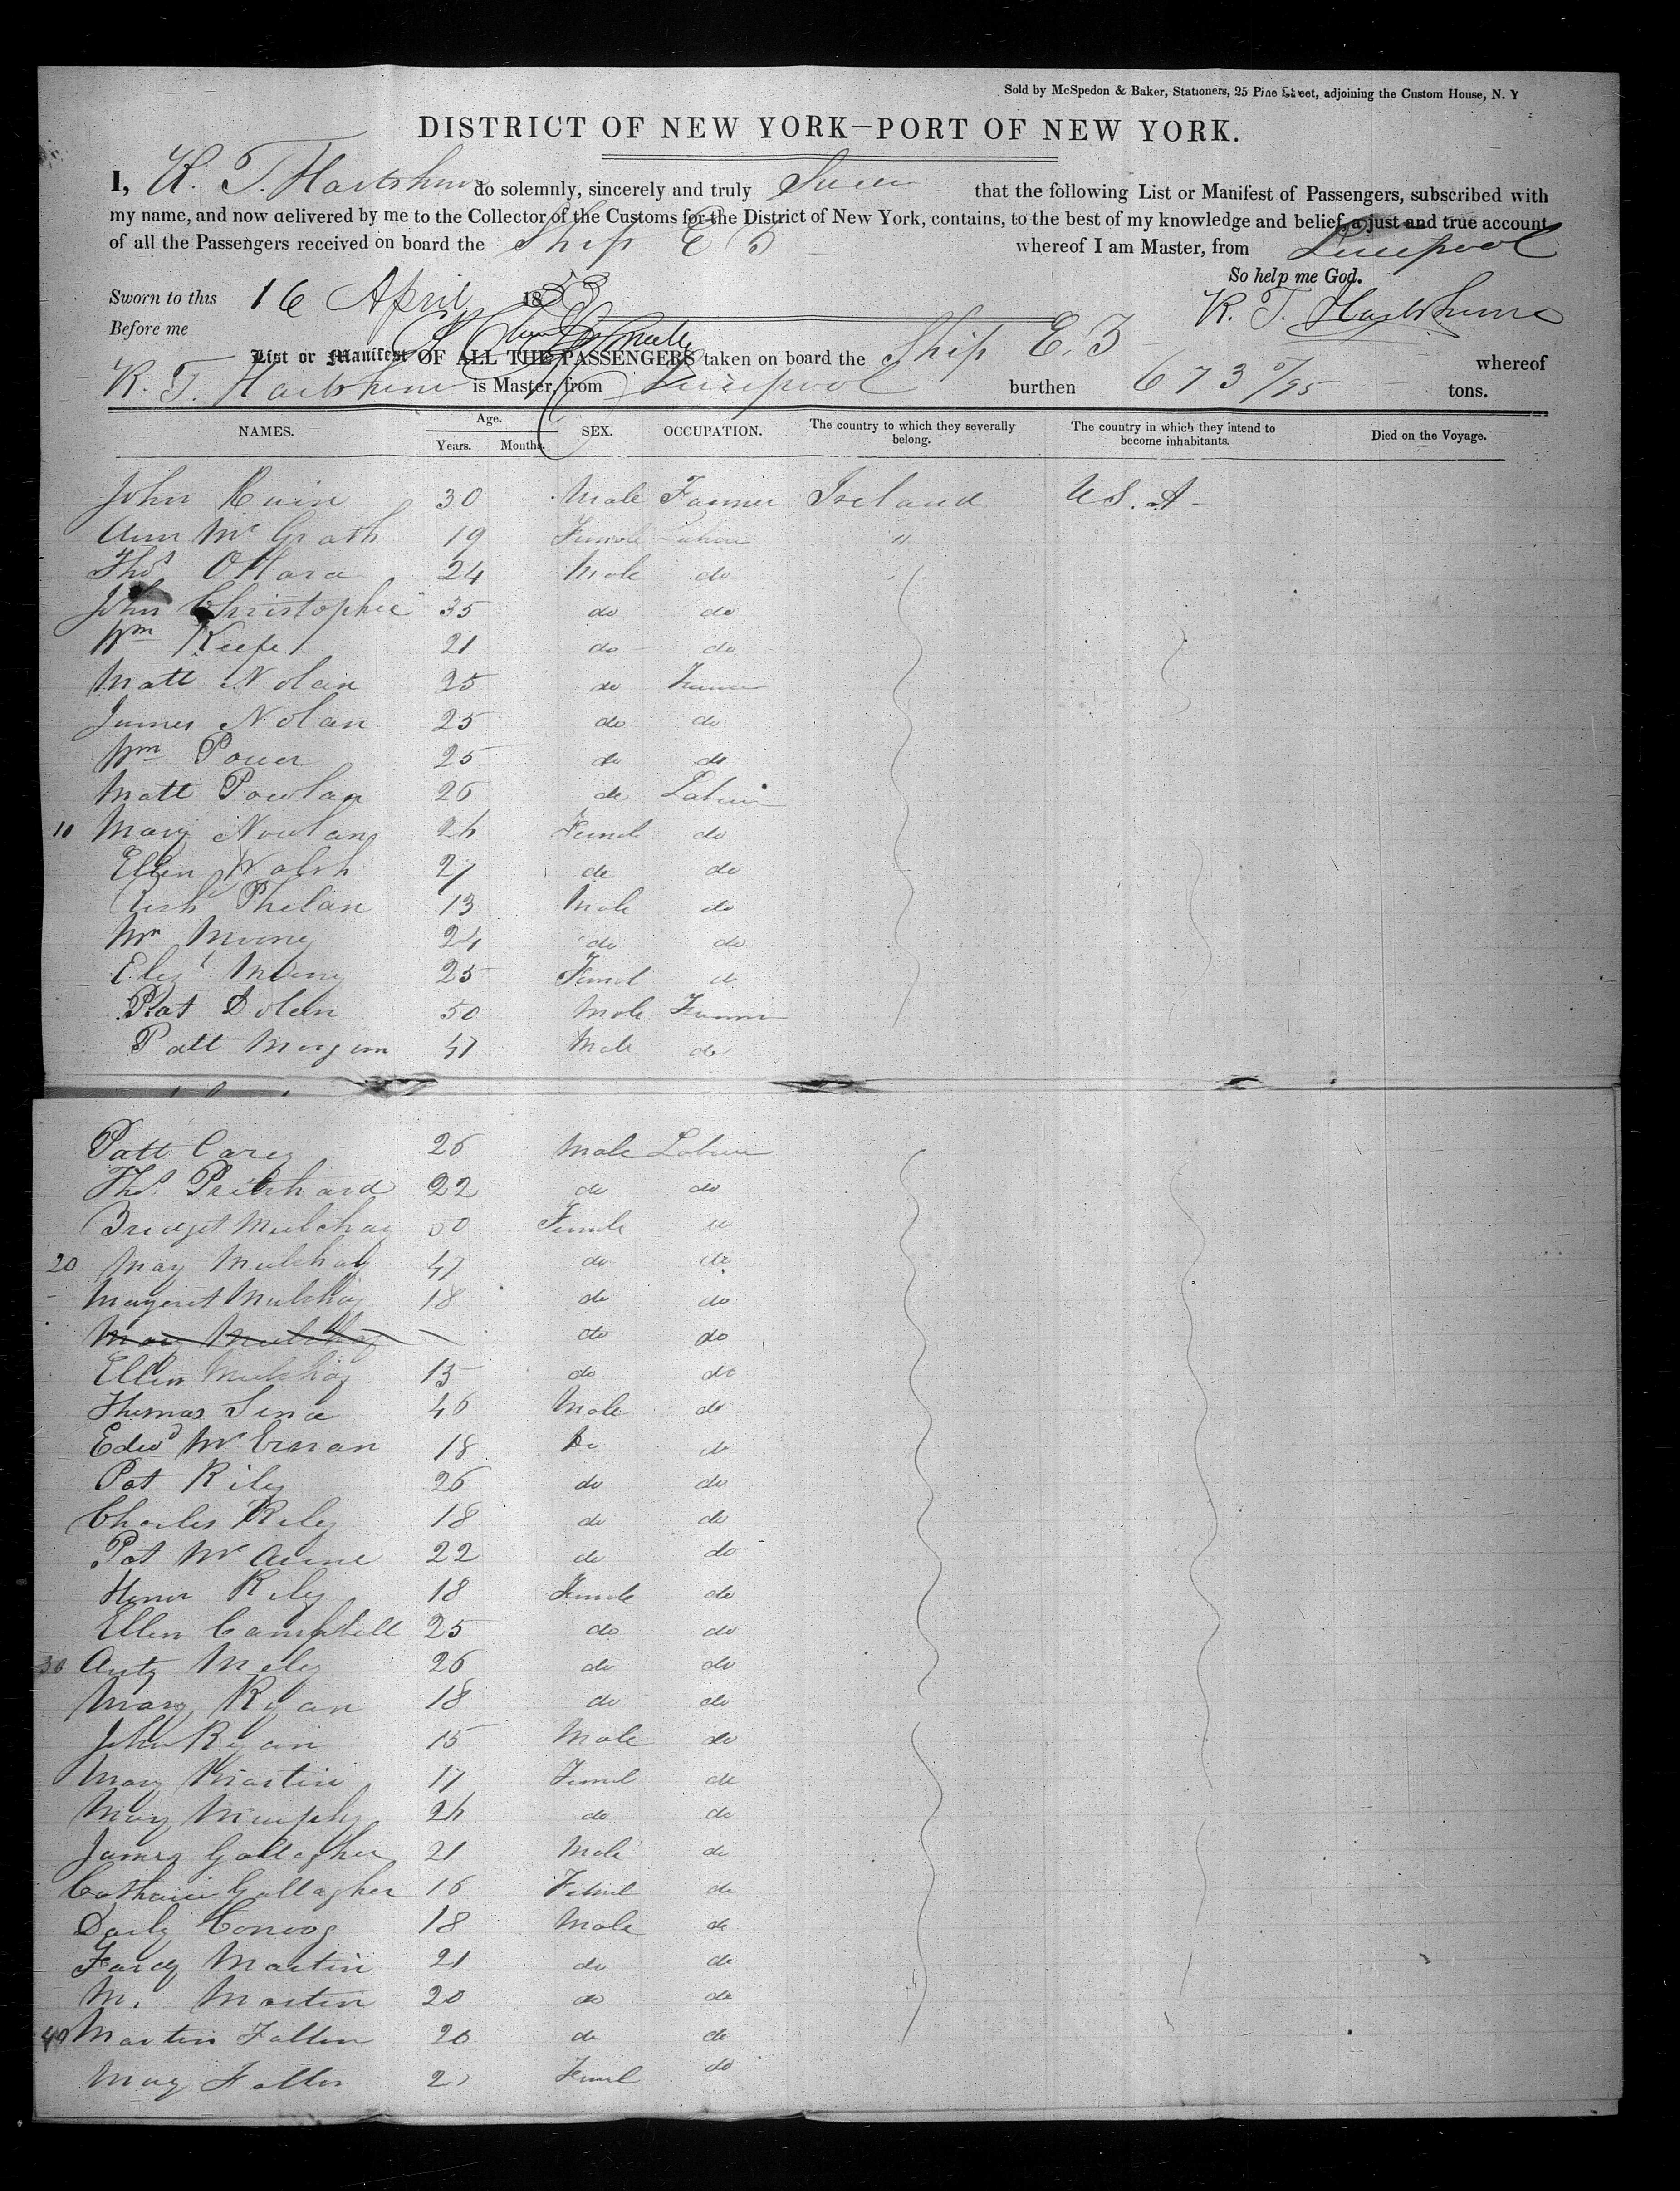 Sold by McSpedon & Baker, Stationers, 25 Pine Street, adjoining the Custom House, N. Y
DISTRICT OF NEW YORK—PORT OF NEW YORK.
I, R. T. Hartshorne do solemnly, sincerely and truly Swear that the following List or Manifest of Passengers, subscribed with
my name, and now delivered by me to the Collector of the Customs for the District of New York, contains, to the best of my knowledge and belief, a just and true account
of all the Passengers received on board the Ship E Z whereof I am Master, from Liverpool
So help me God.
Sworn to this 16 April 1853 R. T. Hartshorne
Before me
List or Manifest OF ALL THE PASSENGERS taken on board the Ship E. Z whereof
R. T. Hartshorne is Master, from Liverpool burthen 673 0/95 tons.
NAMES. Age. Years. Months. SEX. OCCUPATION. The country to which they severally belong. The country in which they intend to become inhabitants. Died on the Voyage.
John 30 Male Farmer Ireland U.S.A
Ann McGrath 19 Female Labour "
Thos OHara 24 Male do
John Christopher 35 do do
Wm Keefe 21 do do
Matt Nolan 25 do Farmer
James Nolan 25 do do
Wm Power 25 do do
Matt Powlan 26 do Labour
10 Mary Nowlan 24 Female do
Ellen Walsh 27 do do
Richd Phelan 13 Male do
Wm Mooney 24 do do
Elizt Mooney 25 Femal do
Pat Dolan 50 Male Farmer
Patt Morgan 47 Male do
Patt Carey 26 Male Labour
Thos Pritchard 22 do do
Bridget Mulchay 50 Female do
20 Mary Mulchay 47 do do
Margaret Mulchay 18 do do
Mary Mulchay — do do
Ellen Mulchay 15 do do
Thomas 46 Male do
Edwd McErnan 18 Do do
Pat Riley 26 do do
Charles Riley 18 do do
Pat Mc 22 do do
Honor Riley 18 Female do
Ellen Campbell 25 do do
30 Anty Mely 26 do do
Mary Ryan 18 do do
John Ryan 15 Male do
Mary Martin 17 Femal do
Mary Murphy 24 do do
James Gallagher 21 Male do
Catharine Gallagher 16 Femal do
Darby Conroy 18 Male do
Fardy Martin 21 do do
M. Martin 20 do do
40 Martin Fallon 20 do do
Mary Fallon Femal do